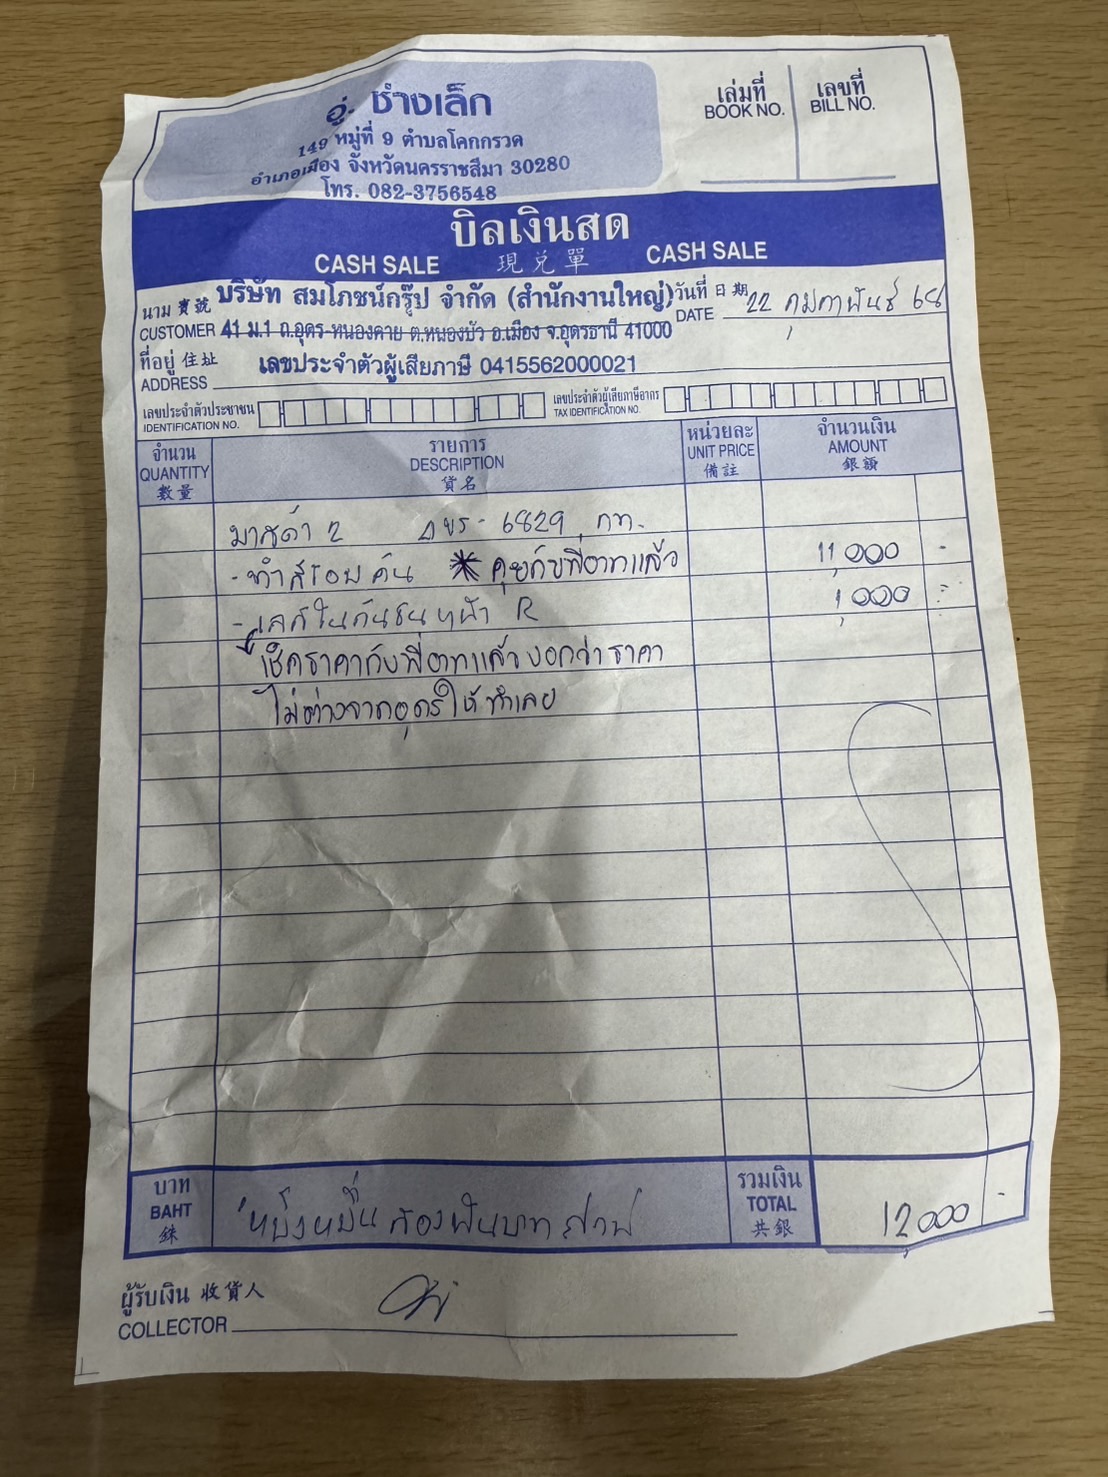 อู่ ช่างเล็ก
149 หมู่ที่ 9 ตำบลโคกกรวด
อำเภอเมือง จังหวัดนครราชสีมา 30280
โทร. 082-3756548
เล่มที่ เลขที่
BOOK NO. BILL NO.
บิลเงินสด
CASH SALE 現兌單 CASH SALE
นาม 寶號 บริษัท สมโภชน์กรุ๊ป จำกัด (สำนักงานใหญ่) วันที่ 日期 22 กุมภาพันธ์ 68
CUSTOMER 41 ม.1 ถ.อุดร-หนองคาย ต.หนองบัว อ.เมือง จ.อุดรธานี 41000 DATE
ที่อยู่ 住址 เลขประจำตัวผู้เสียภาษี 0415562000021
ADDRESS
เลขประจำตัวประชาชน เลขประจำตัวผู้เสียภาษีอากร
IDENTIFICATION NO. TAX IDENTIFICATION NO.
จำนวน รายการ หน่วยละ จำนวนเงิน
QUANTITY DESCRIPTION UNIT PRICE AMOUNT
數量 貨名 備註 銀額
มาสด้า 2 6829 กท.
- ทำสีรอบคัน * คุยกับพี่อาทแล้ว 11,000 -
- กันชนหน้า R 1,000 -
เช็คราคากับพี่อาทแล้วบอกว่าราคา
ไม่ต่างจากอุดรให้ทำเลย
บาท รวมเงิน
BAHT หนึ่งหมื่นสองพันบาทถ้วน TOTAL 12,000 -
銖 共銀
ผู้รับเงิน 收貨人
COLLECTOR